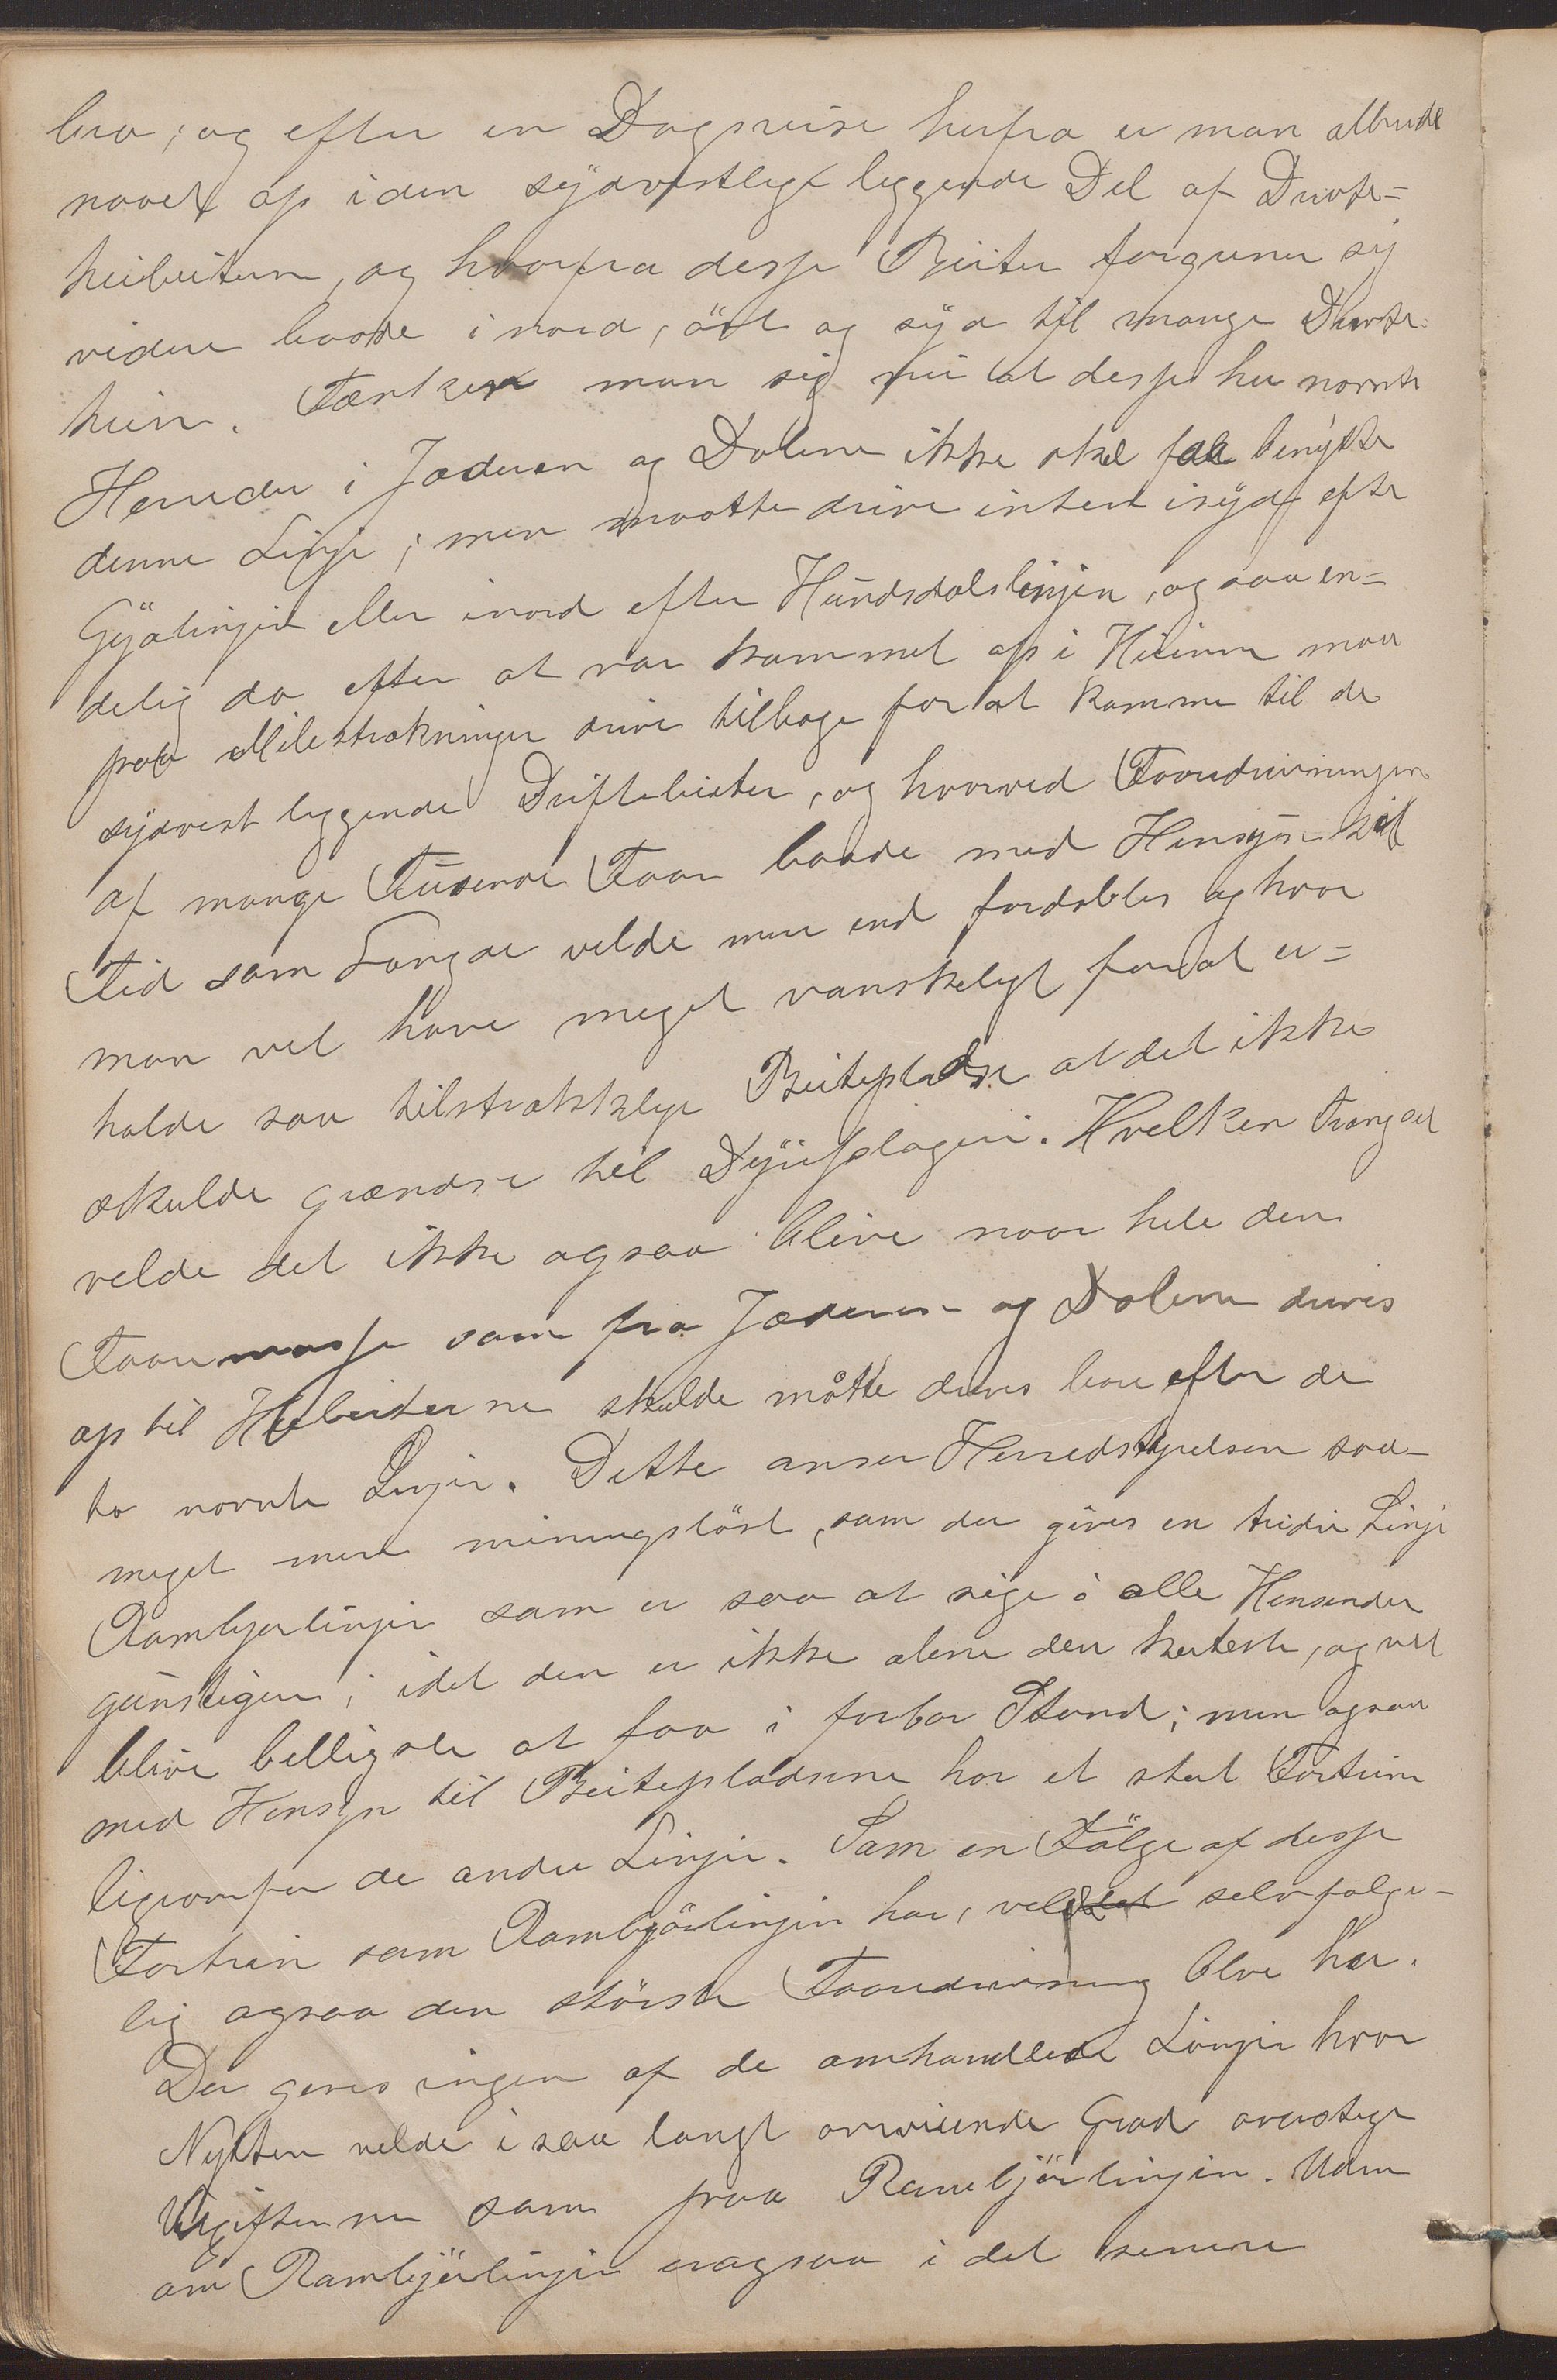 bra; og efter en Dagsreise herfra er man allerede
naaet op i den sydvestlige liggende Del af Drifte-
heibeiterne, og hvorfra disse Beiter forgrener sig
videre baade i nord, öst og syd til mange Drifte-
heier. Tænker man sig nu at disse her nævnte
Herreder i Jæderen og Dalene ikke skal faa benytte
denne Linje; men maatte drive intent isyd efter
Gyalinjen eller inord efter Hundsdalslinjen, og saa en-
delig da efter at var kommet op i Heierne maa
paa Milestrækninger drive tilbage for at komme til de
sydvest liggende Driftebeiter, og hvorved Faaredrivningen
af mange Tusende Faar baade med Hensyn til
Tid som Længde vilde mer end fordobles og hvor
man vil have meget vanskeligt for at er=
holde saa tilstrækkelige Beitepladse at det ikke
skulde grændse til Dyrplageri. Hvilken Trængsel
vilde det ikke ogsaa blive naar hele den
Faaremasse som fra Jæderen og Dalene drives
op til Heibeiterne skulde måtte drives bare efter de
to nævnte Linjer. Dette anser Herredstyrelsen saa-
meget mere meningslöst, som der gives en tredie Linje
Rambjerlinjen som er saa at sige i alle Henseender
gunstigere; idet den er ikke alene den korteste, og vil
blive billigste at faa i farbar Stand; men ogsaa
med Hensyn til Beitepladsene har et stort Fortrin
ligeoverfor de andre Linjer. Som en Fölge af disse
Fortrin som Rambjörlinjen har, vilde selvfølge-
lig ogsaa den störste Faaredrivning blive her.
Der gives ingen af de omhandlede Linjer hvor
Nytten vilde i saa langt overveiende Grad overstige
Udgifterne som paa Rambjörlinjen. Uden
om Rambjörlinjen er ogsaa i det senere